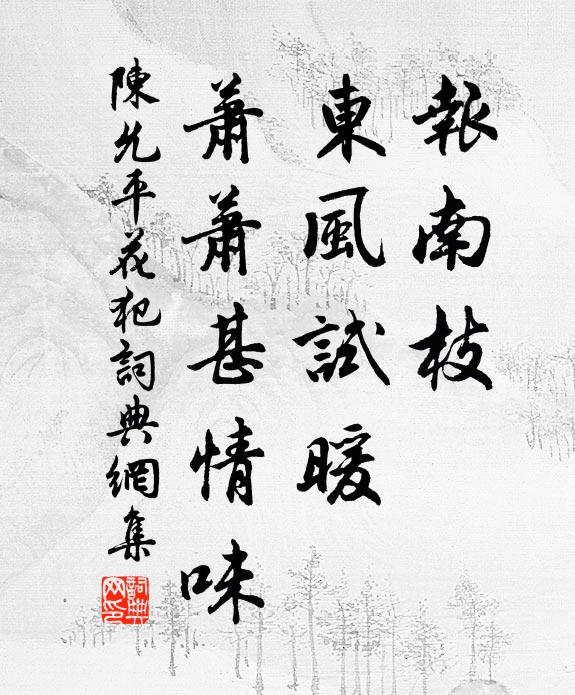 報南枝
東風試暖
蕭蕭甚情味
陳允平花犯詞典網集
詞典網印